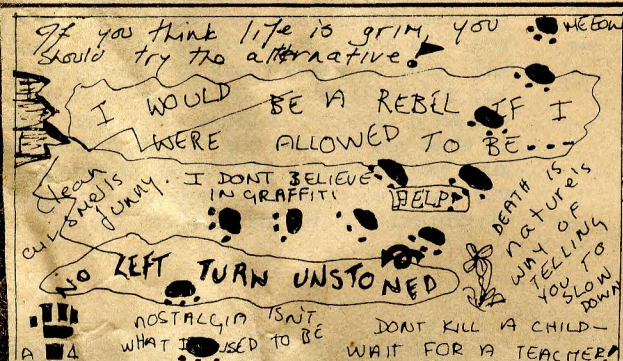 If you think life is grim, you
should try the alternative!
MEEOW
I WOULD BE A REBEL IF I
WERE ALLOWED TO BE---
Clean
air smells
funny.
I DONT BELIEVE
IN GRAFFITI
HELP
DEATH IS
nature's
WAY OF
TELLING
YOU TO
SLOW
DOWN
NO LEFT TURN UNSTONED
NOSTALGIA ISN'T
WHAT IT USED TO BE
DONT KILL A CHILD—
WAIT FOR A TEACHER!
A 4